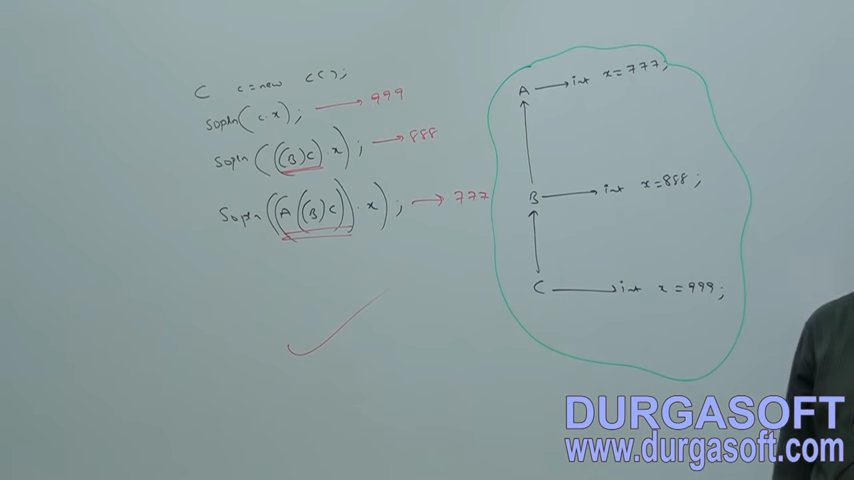 C c=new C();
Sopln(c.x); → 999
Sopln(((B)C).x); → 888
Sopln((A((B)C)).x); → 777
A → int x=777;
B → int x=888;
C → int x=999;
DURGASOFT
www.durgasoft.com